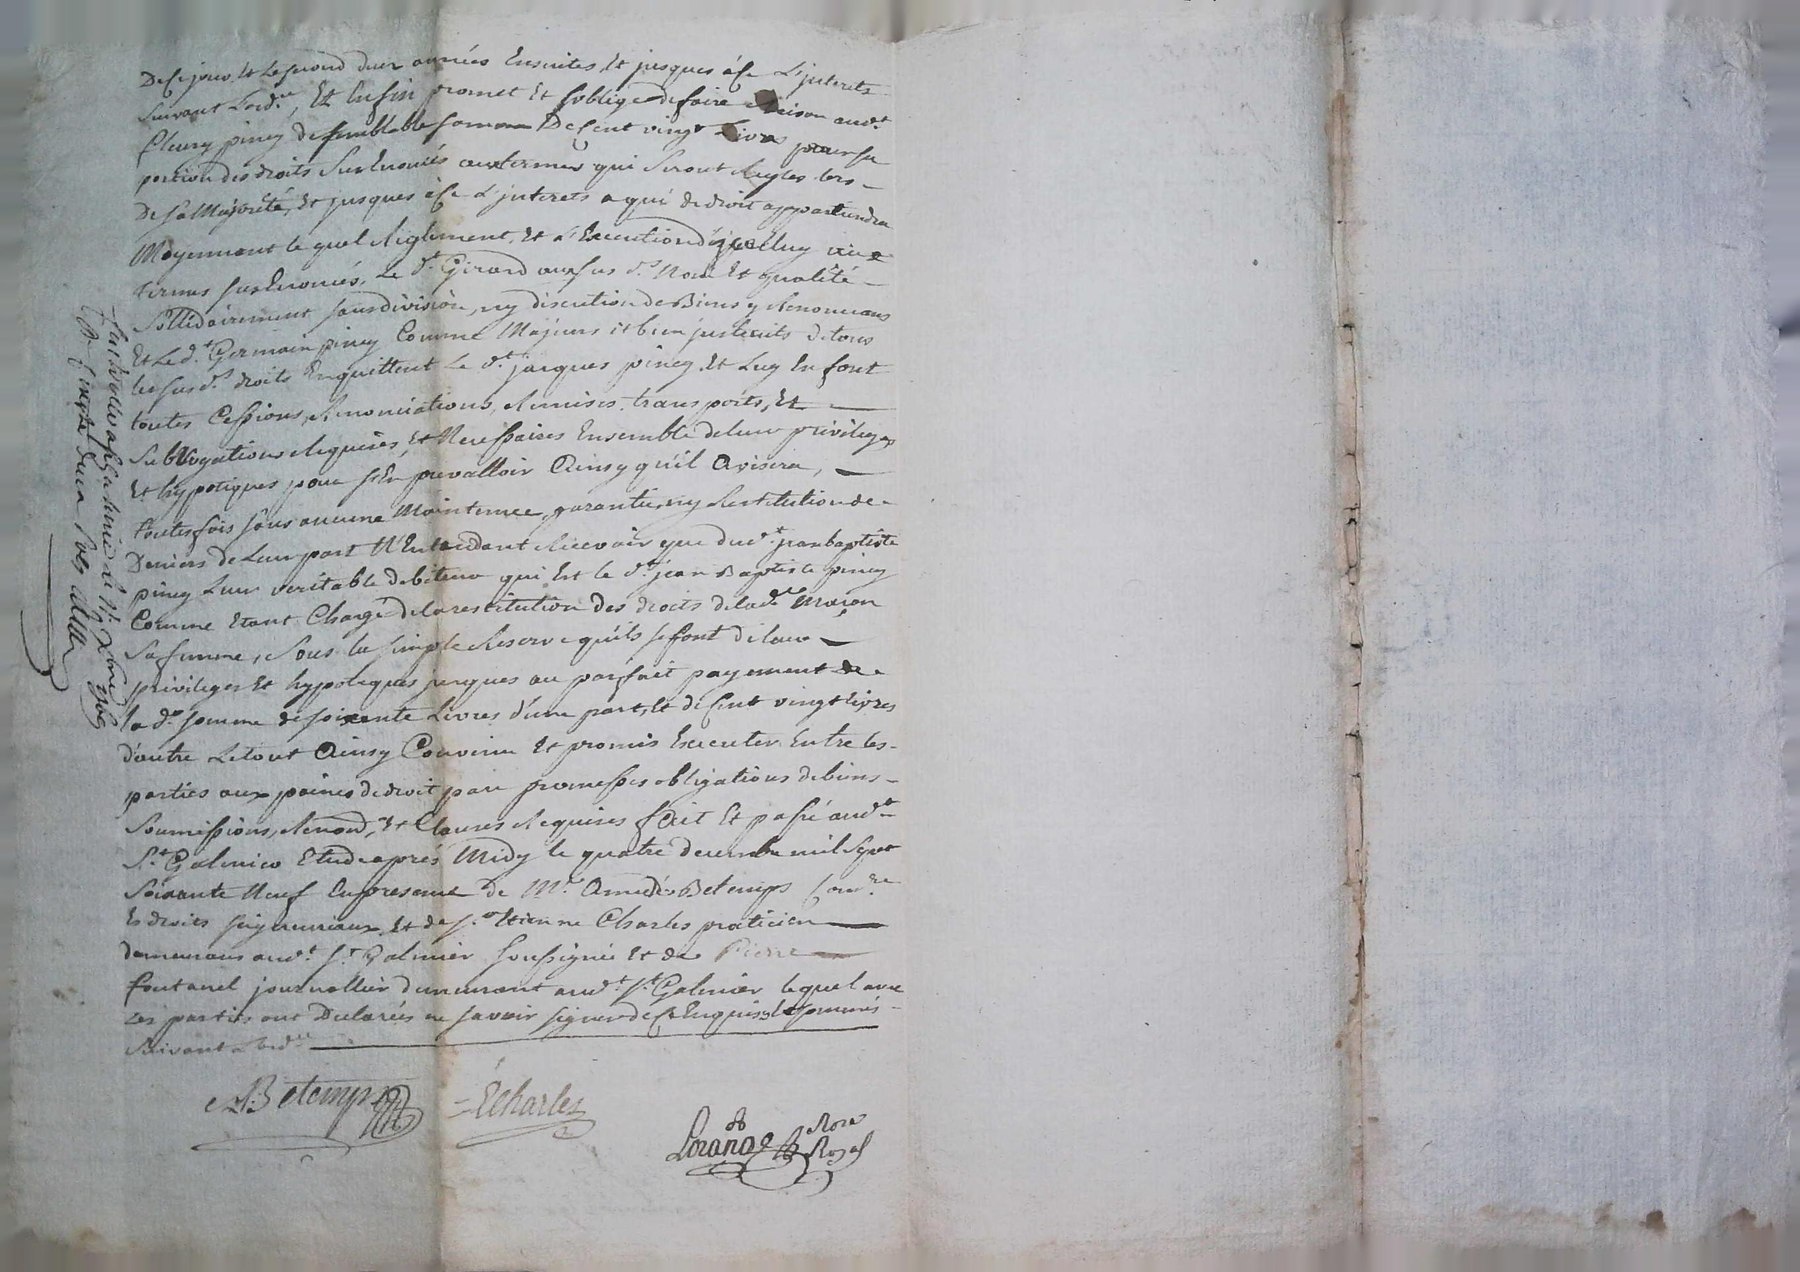 De ce jour, et le second deux années Ensuites, et jusques à ce L'juterets
suivant L'ord.ce, Et Enfin promet Et s'oblige de faire Raison aud.t
fleury piney de semblable somme De Cent vingt Livres pour sa
portion des droits Surénoncés aux termes qui Seront Reglés lors
De sa Majorité, Et jusques à ce L'juterets a qui de droit appartiendra
Moyennant le quel Reglement, Et L'Execution d'jceluy aux
termes surénoncés, Le d.t Girard aux sus d.s Nom Et qualité
Sollidairement sans division, ny discution de Biens y Renoncans
Et Le d.t Germain piney Comme Majeurs et bien justruits de tous
les susd.s droits En quittent Le d.t jacques piney, Et Luy En font
toutes Cessions, Renonciations, Remises, transports, Et
Subrogations Requises, Et Necessaires Ensemble de leur privileges
Et hypotiques, pour s'En prevalloir Ainsy qu'il Avisera,
toutes fois sans aucune Maintenue, garantie, ny Restitution de
Deniers de Leur part N'Entendant Recevoir que dud.t jean baptiste
piney Leur veritable debiteur qui Est le d.t jean Baptiste piney
Comme Etant Chargé de la restitution des droits de lad.e
Sa femme, Sous la simple Reserve qu'ils se font de leur
privileges Et hypoteques jusques au parfait payement de
la d.e somme de soixante Livres d'une part, Et de Cent vingt livres
d'autre Le tout Ainsy Convenu Et promis Executer Entre les
parties aux peines de droit par promesses obligations de biens
Soumissions, Renon.ons Et Clauses Requises fait Et passé aud.t
S.t Galmier Etude après Midy le quatre decembre mil Sept
Soixante Neuf En presence de M.e Amedée Betemps
Es droits seigneuriaux, Et de s.r Etienne Charles praticien
demeurans aud.t S.t Galmier soussignés Et de Pierre
fontanel journallier demeurant aud.t S.t Galmier lequel avec
Les parties ont Declarés ne savoir signer de ce Enquis et sommés
Suivant L'ord.ce
A Betemps
ECharles
Rose
Royal